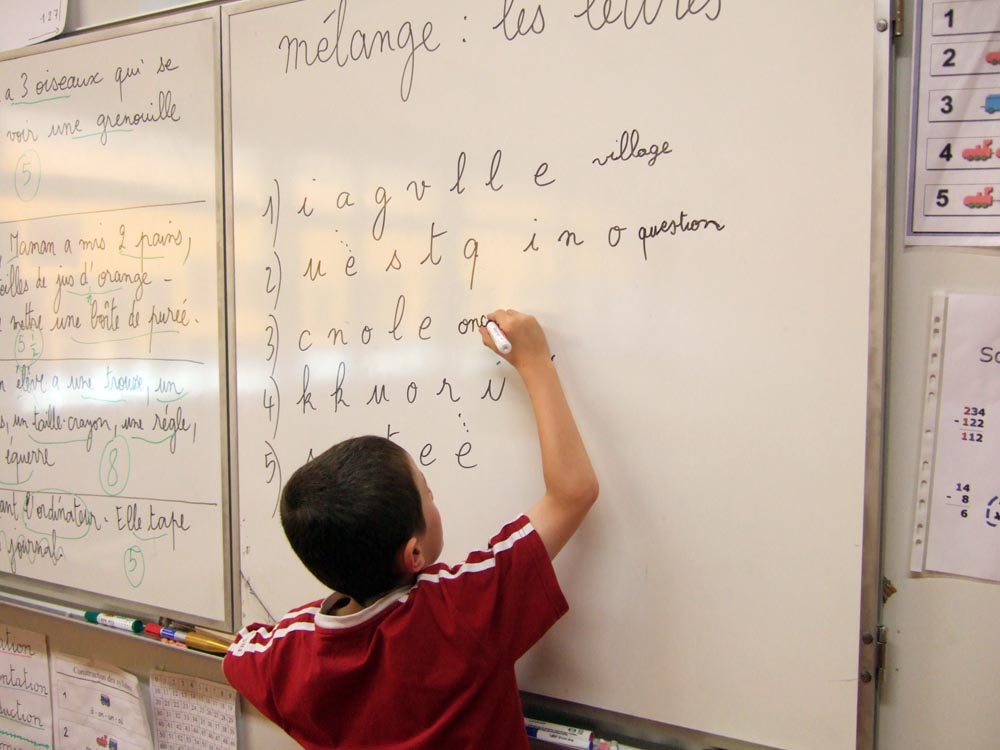 127
mélange : les lettres
a 3 oiseaux qui se
voir une grenouille
5
Maman a mis 2 pains,
jus d'orange -
mettre une boîte de purée.
5 1/2
élève a une trousse, un
un taille-crayon, une règle,
équerre
8
l'ordinateur. Elle tape
journal.
5
1) i a g v l l e village
2) u e s t q i n o question
3) c n o l e onc
4) k k u o r i
5) t e e
1
2
3
4
5
234
- 122
112
14
- 8
6
Construction des
1
2